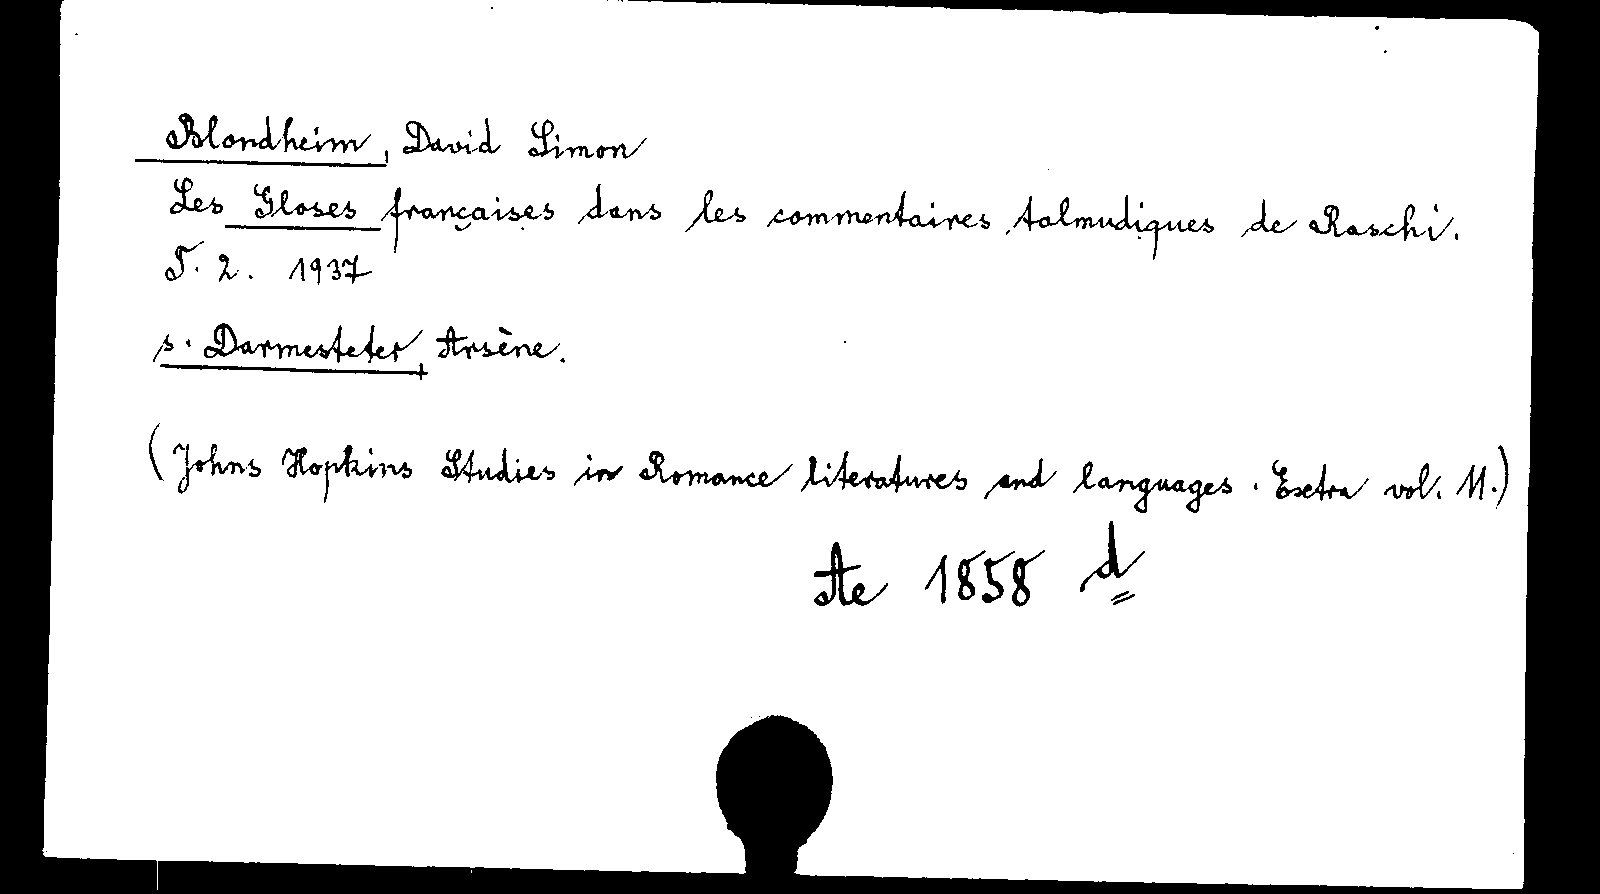 Blondheim, David Simon
Les Gloses françaises dans les commentaires talmudiques de Raschi.
T. 2. 1937
s. Darmesteter, Arsène.
(Johns Hopkins Studies in Romance literatures and languages. Extra vol. 11.)
Ae 1858 d